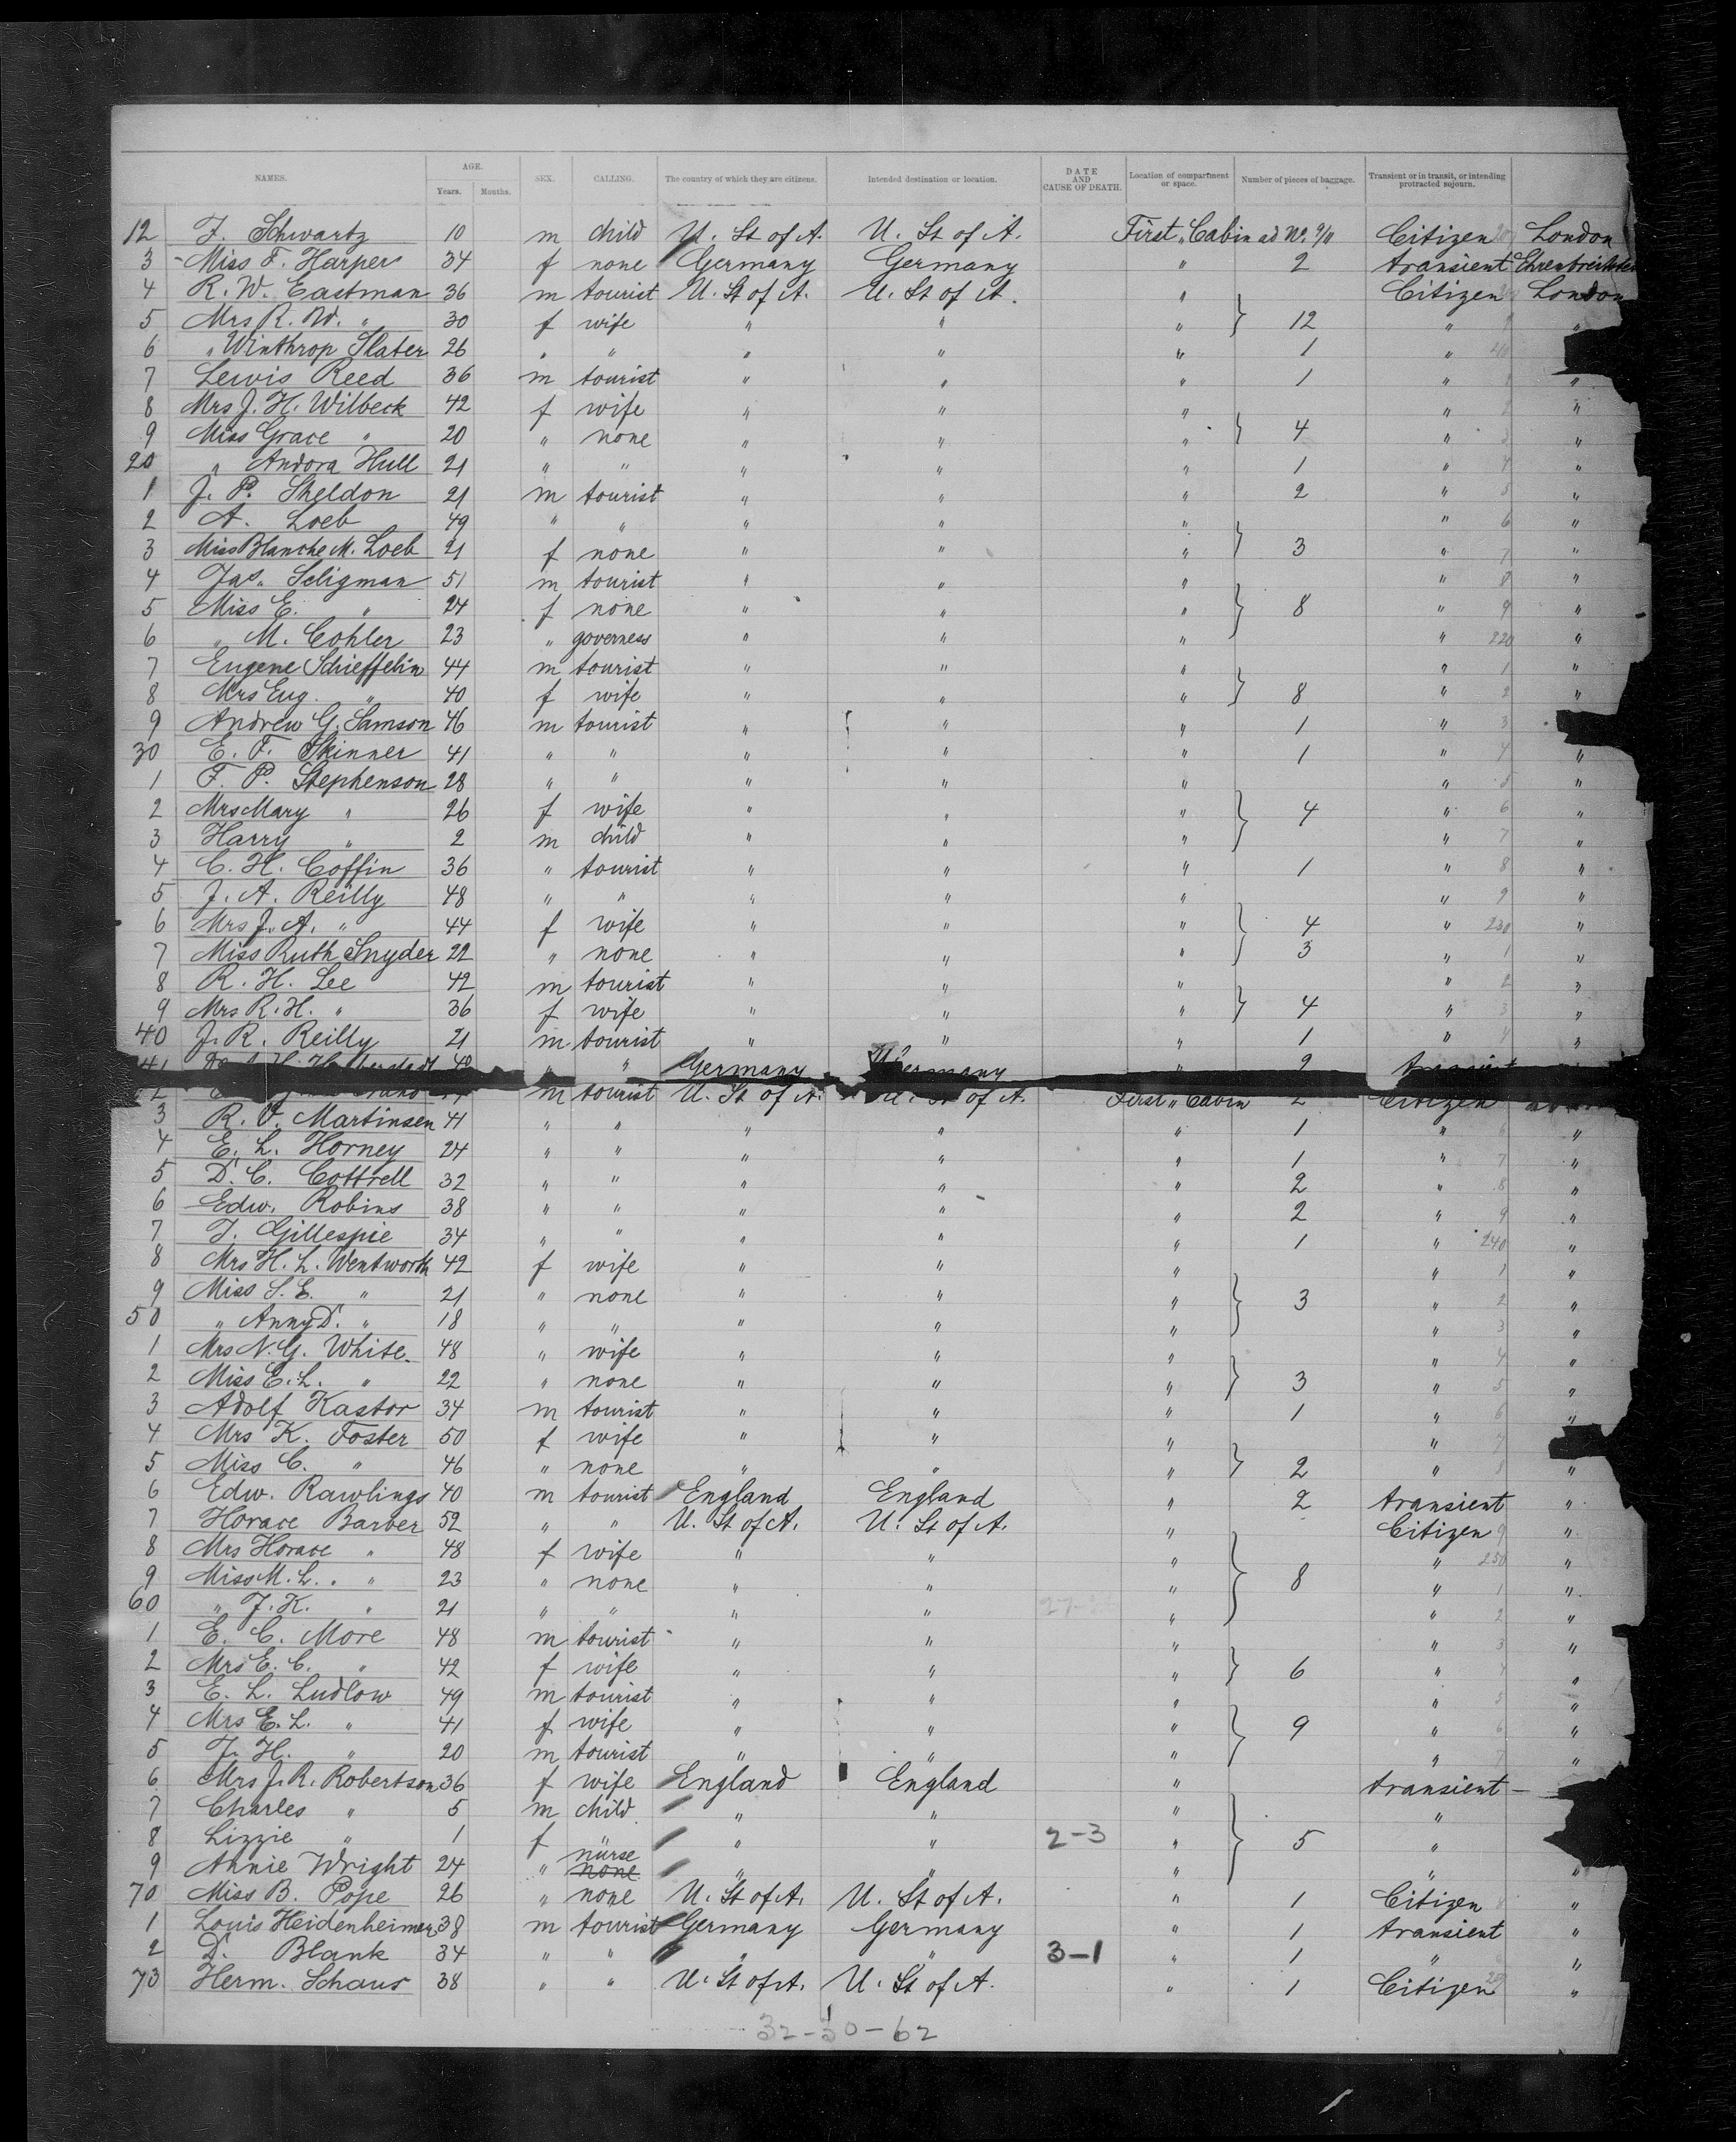 NAMES. AGE. Years. Months. SEX. CALLING. The country of which they are citizens. Intended destination or location. DATE AND CAUSE OF DEATH. Location of compartment or space. Number of pieces of baggage. Transient or in transit, or intending protracted sojourn.
12 F. Schwartz 10 m child U. St of A. U. St of A. First „ Cabin Citizen London
3 Miss F. Harper 34 f none Germany Germany " 2 transient
4 R. W. Eastman 36 m tourist U. St of A. U. St of A. " Citizen London
5 Mrs R. W. " 30 f wife " " " } 12 " "
6 " Winthrop Slater 26 " " " " " 1 "
7 Lewis Reed 36 m tourist " " " 1 " "
8 Mrs J. H. Wilbeck 42 f wife " " " " "
9 Miss Grace " 20 " none " " " } 4 " "
20 " Andora Hull 21 " " " " " 1 " "
1 J. P. Sheldon 21 m tourist " " " 2 " "
2 A. Loeb 49 " " " " " " "
3 Miss Blanche M. Loeb 21 f none " " " } 3 " "
4 Jas. Seligman 51 m tourist " " " " "
5 Miss E. " 24 f none " " " } 8 " "
6 " M. Cohler 23 " governess " " " " 220 "
7 Eugene Schieffelin 44 m tourist " " " " 1 "
8 Mrs Eug. " 40 f wife " " " } 8 " 2 "
9 Andrew G. Samson 46 m tourist " " " 1 " 3
30 E. F. Skinner 41 " " " " " 1 " 4 "
1 F. P. Stephenson 28 " " " " " " 5 "
2 Mrs Mary " 26 f wife " " " } 4 " 6 "
3 Harry " 2 m child " " " " 7 "
4 C. H. Coffin 36 " tourist " " " 1 " 8 "
5 J. A. Reilly 48 " " " " " " 9 "
6 Mrs J. A. " 44 f wife " " " } 4 " 230 "
7 Miss Ruth Snyder 22 " none " " " 3 " 1 "
8 R. H. Lee 42 m tourist " " " " 2 "
9 Mrs R. H. " 36 f wife " " " } 4 " 3 "
40 J. R. Reilly 21 m tourist " " " 1 " 4 "
41 " Germany Germany " 2 transient
m tourist U. St of A. U. St of A. First „ Cabin 2 Citizen
3 R. V. Martinsen 41 " " " " " 1 " 6 "
4 E. L. Horney 24 " " " " " 1 " 7 "
5 D. C. Cottrell 32 " " " " " 2 " 8 "
6 Edw. Robins 38 " " " " " 2 " 9 "
7 T. Gillespie 34 " " " " " 1 " 240 "
8 Mrs H. L. Wentworth 42 f wife " " " " 1 "
9 Miss S. E. " 21 " none " " " } 3 " 2 "
50 " Anny D. " 18 " " " " " " 3 "
1 Mrs N. G. White 48 " wife " " " " 4 "
2 Miss E. L. " 22 " none " " " } 3 " 5 "
3 Adolf Kastor 34 m tourist " " " 1 " 6 "
4 Mrs K. Foster 50 f wife " " " " 7
5 Miss C. " 46 " none " " " } 2 " 8 "
6 Edw. Rawlings 40 m tourist England England " 2 transient "
7 Horace Barber 52 " " U. St of A. U. St of A. " Citizen 9 "
8 Mrs Horace " 48 f wife " " " " 250 "
9 Miss M. L. " 23 " none " " " } 8 " 1 "
60 " J. K. " 21 " " " " " " 2 "
1 E. C. More 48 m tourist " " " " 3 "
2 Mrs E. C. " 42 f wife " " " } 6 " 4 "
3 E. L. Ludlow 49 m tourist " " " " 5 "
4 Mrs E. L. " 41 f wife " " " } 9 " 6 "
5 J. H. " 20 m tourist " " " " 7 "
6 Mrs J. R. Robertson 36 f wife England England " transient
7 Charles " 5 m child " " " "
8 Lizzie " 1 f " " 2-3 " } 5 "
nurse
9 Annie Wright 24 " none " " " " "
70 Miss B. Pope 26 " none U. St of A. U. St of A. " 1 Citizen 8 "
1 Louis Heidenheimer 38 m tourist Germany Germany " 1 transient "
2 D. Blank 34 " " " " 3-1 " 1 " "
73 Herm. Schaus 38 " " U. St of A. U. St of A. " 1 Citizen "
32-30-62